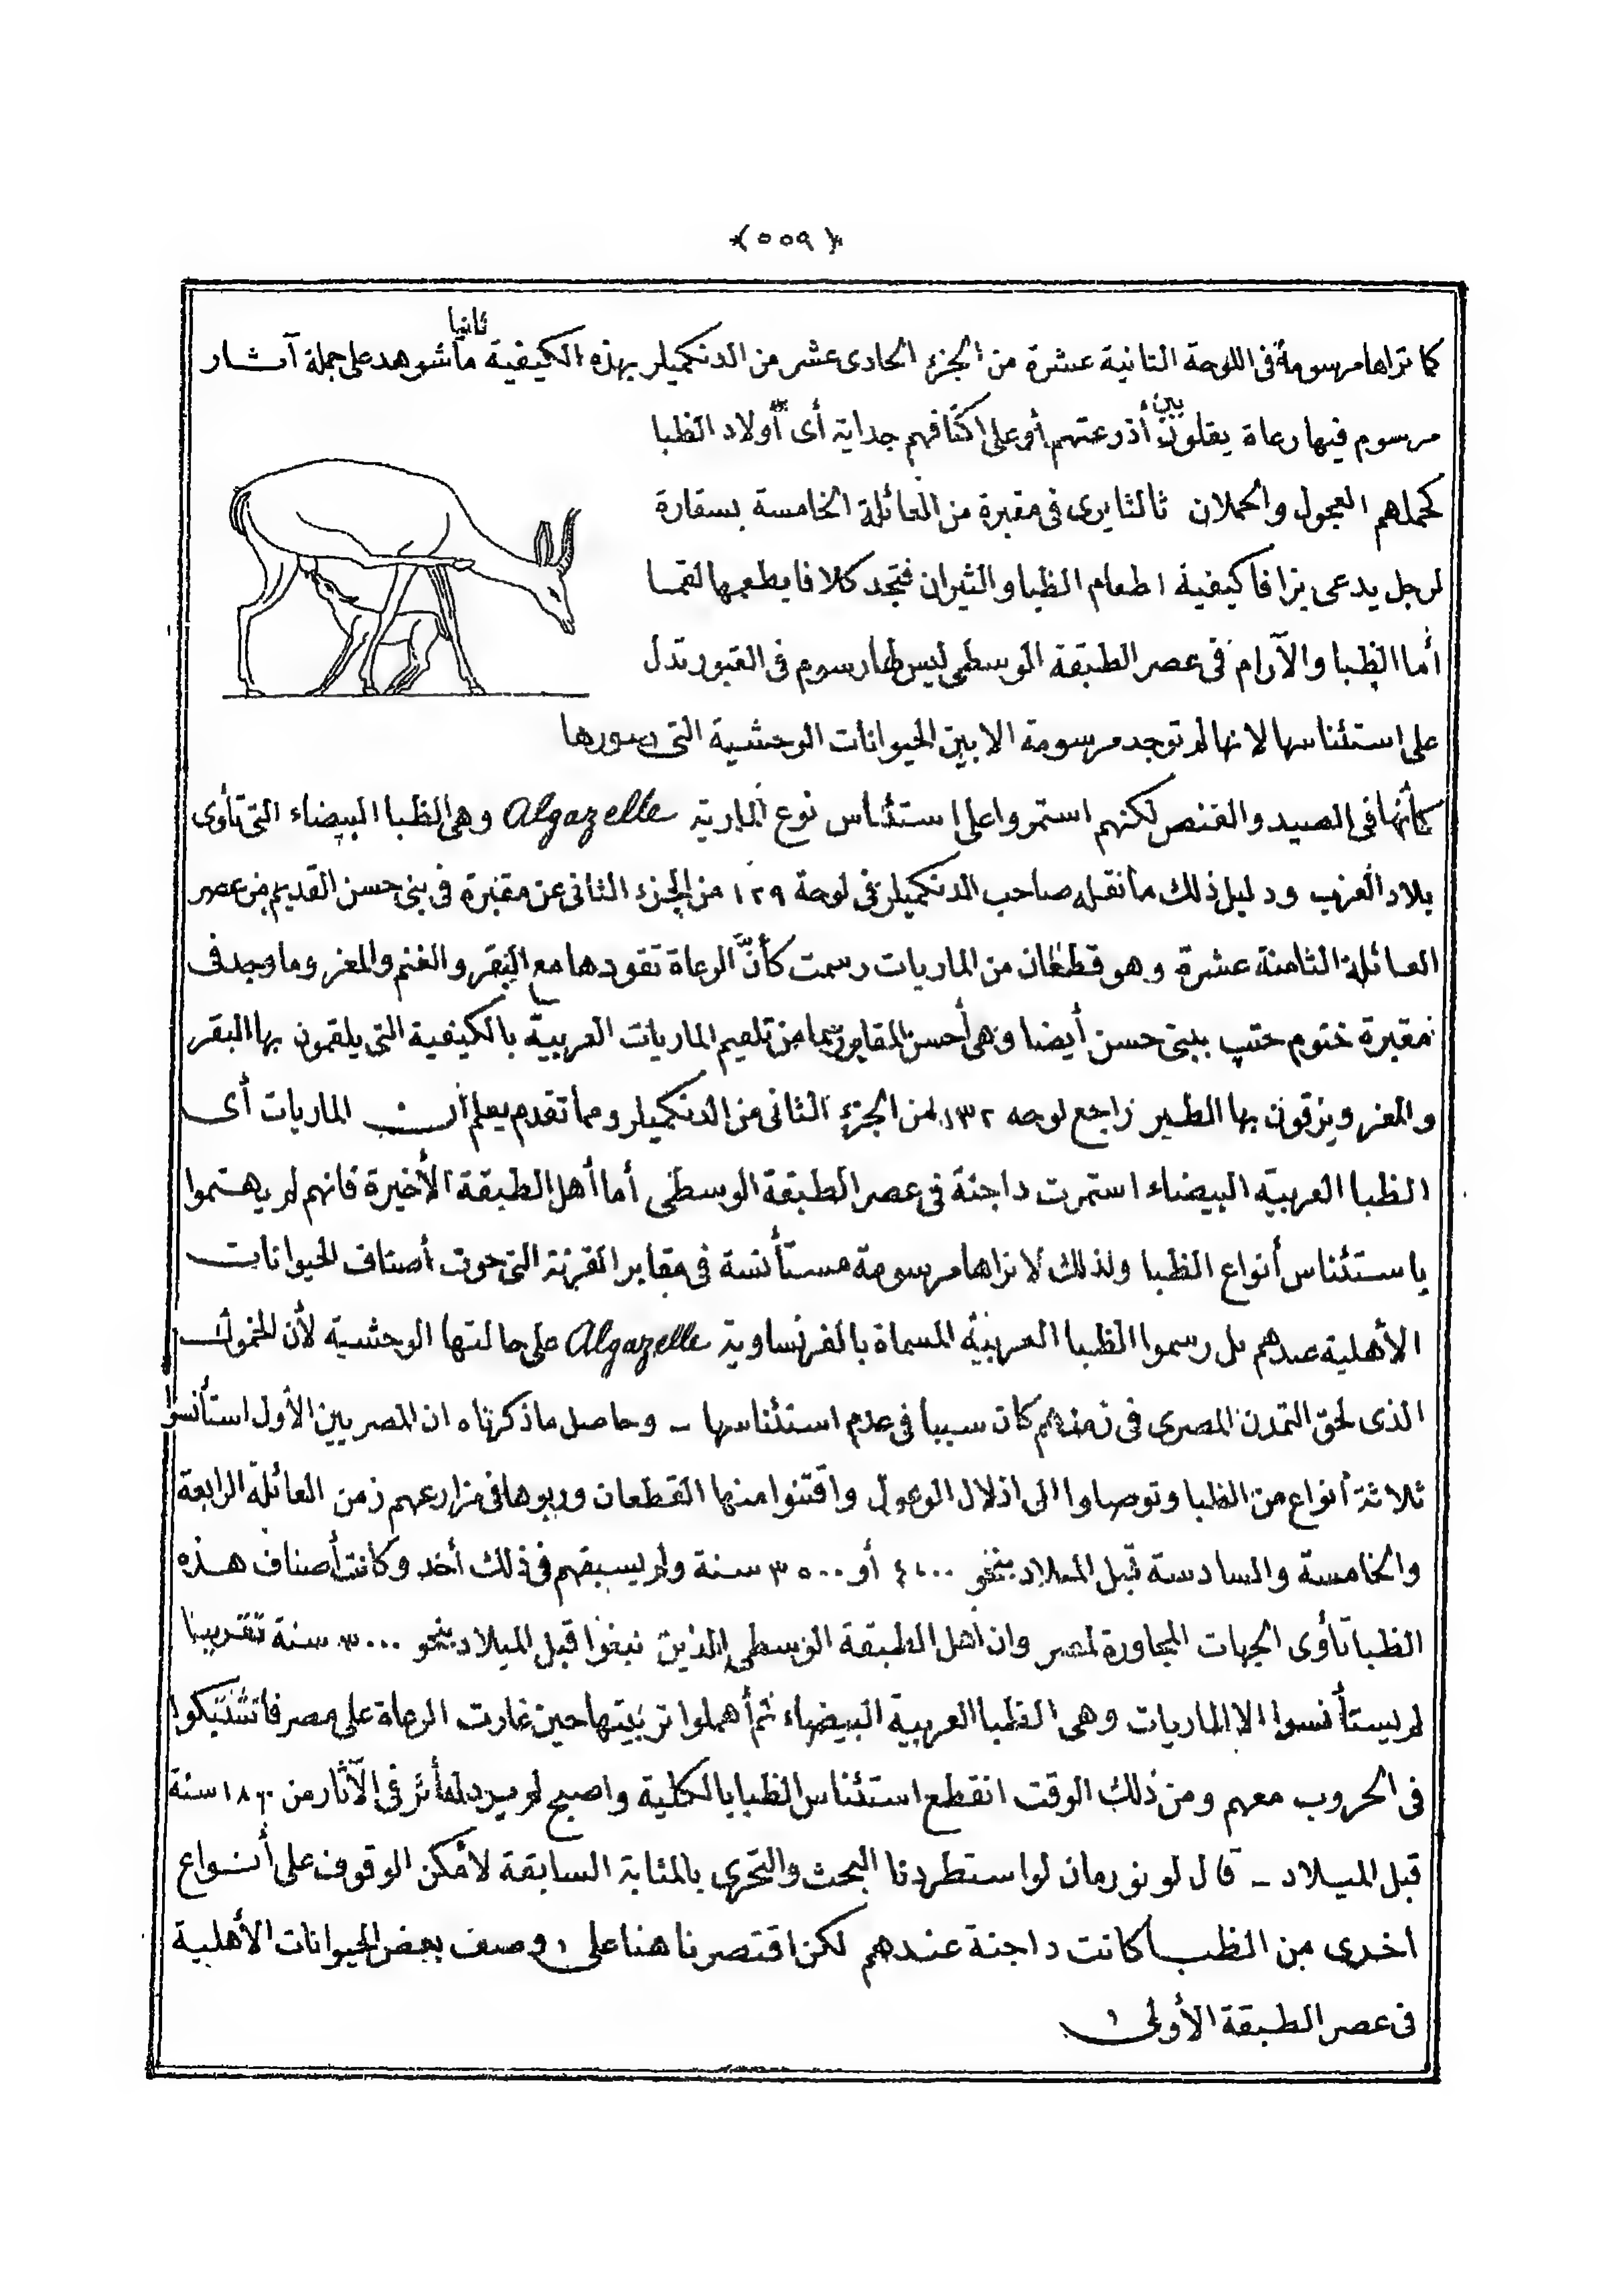 ﴿ ٥٥٩ ﴾
كما تراها مرسومة فى اللوحة الثانية عشرة من الجزء الحادى عشر من الدنكميلر بهذه الكيفية ثانيا ما شوهد على جملة آثار
مرسوم فيها رعاة يقلون بين أذرعتهم أو على اكتافهم جداية أى أولاد الظبا
كحملهم العجول والحملان ثالثا يرى فى مقبرة من العائلة الخامسة بسقارة
لرجل يدعى يزافا كيفية اطعام الظبا والثيران فتجد كلافا يطعمها لقما
أما الظبا والآرام فى عصر الطبقة الوسطى ليس لها رسوم فى القبور تدل
على استئناسها لانها لم توجد مرسومة الا بين الحيوانات الوحشية التى
كأنها فى الصيد والقنص لكنهم استمروا على استئناس نوع المارية Algazelle وهى الظبا البيضاء التى تأوى
بلاد العرب ودليل ذلك ما نقله صاحب الدنكميلر فى لوحة ١٢٩ من الجزء الثانى عن مقبرة فى بنى حسن القديم من عصر
العائلة الثامنة عشرة وهو قطعان من الماريات رسمت كأنّ الرعاة تقودها مع البقر والغنم والمعز وما وجد فى
مقبرة ختوم حتب ببنى حسن أيضا وهى أحسن المقابر من تلقيم الماريات العربية بالكيفية التى يلقمون بها البقر
والمعز ويزقون بها الطير راجع لوحه ١٣٢ من الجزء الثانى من الدنكميلر ومما تقدم يعلم أن الماريات أى
الظبا العربية البيضاء استمرت داجنة فى عصر الطبقة الوسطى أما أهل الطبقة الأخيرة فانهم لم يهتموا
باستئناس أنواع الظبا ولذلك لا نراها مرسومة مستأنسة فى مقابر القرنة التى حوت أصناف الحيوانات
الأهلية عندهم بل رسموا الظبا العربية المسماة بالفرنساوية Algazelle على حالتها الوحشية لأن الخمول
الذى لحق التمدن المصرى فى زمنهم كان سببا فى عدم استئناسها - وحاصل ما ذكرناه ان المصريين الأول استأنسوا
ثلاثة أنواع من الظبا وتوصلوا الى اذلال الوعول واقتنوا منها القطعان وربوها فى مزارعهم زمن العائلة الرابعة
والخامسة والسادسة قبل الميلاد بنحو ٤٠٠٠ أو ٣٥٠٠ سنة ولم يسبقهم فى ذلك أحد وكانت أصناف هذه
الظبا تأوى الجهات المجاورة لمصر وان أهل الطبقة الوسطى الذين نبغوا قبل الميلاد بنحو ٣٠٠٠ سنة تقريبا
لم يستأنسوا الا الماريات وهى الظبا العربية البيضاء ثم أهملوا تربيتها حين غارت الرعاة على مصر فاشتبكوا
فى الحروب معهم ومن ذلك الوقت انقطع استئناس الظبا بالكلية واصبح لم يرد لها أثر فى الآثار من ١٨٠٠ سنة
قبل الميلاد - قال لو نورمان لو استطردنا البحث والتحرى بالمثابة السابقة لأمكن الوقوف على أنواع
اخرى من الظبا كانت داجنة عندهم لكن اقتصرنا هنا على وصف بعض الحيوانات الأهلية
فى عصر الطبقة الأولى